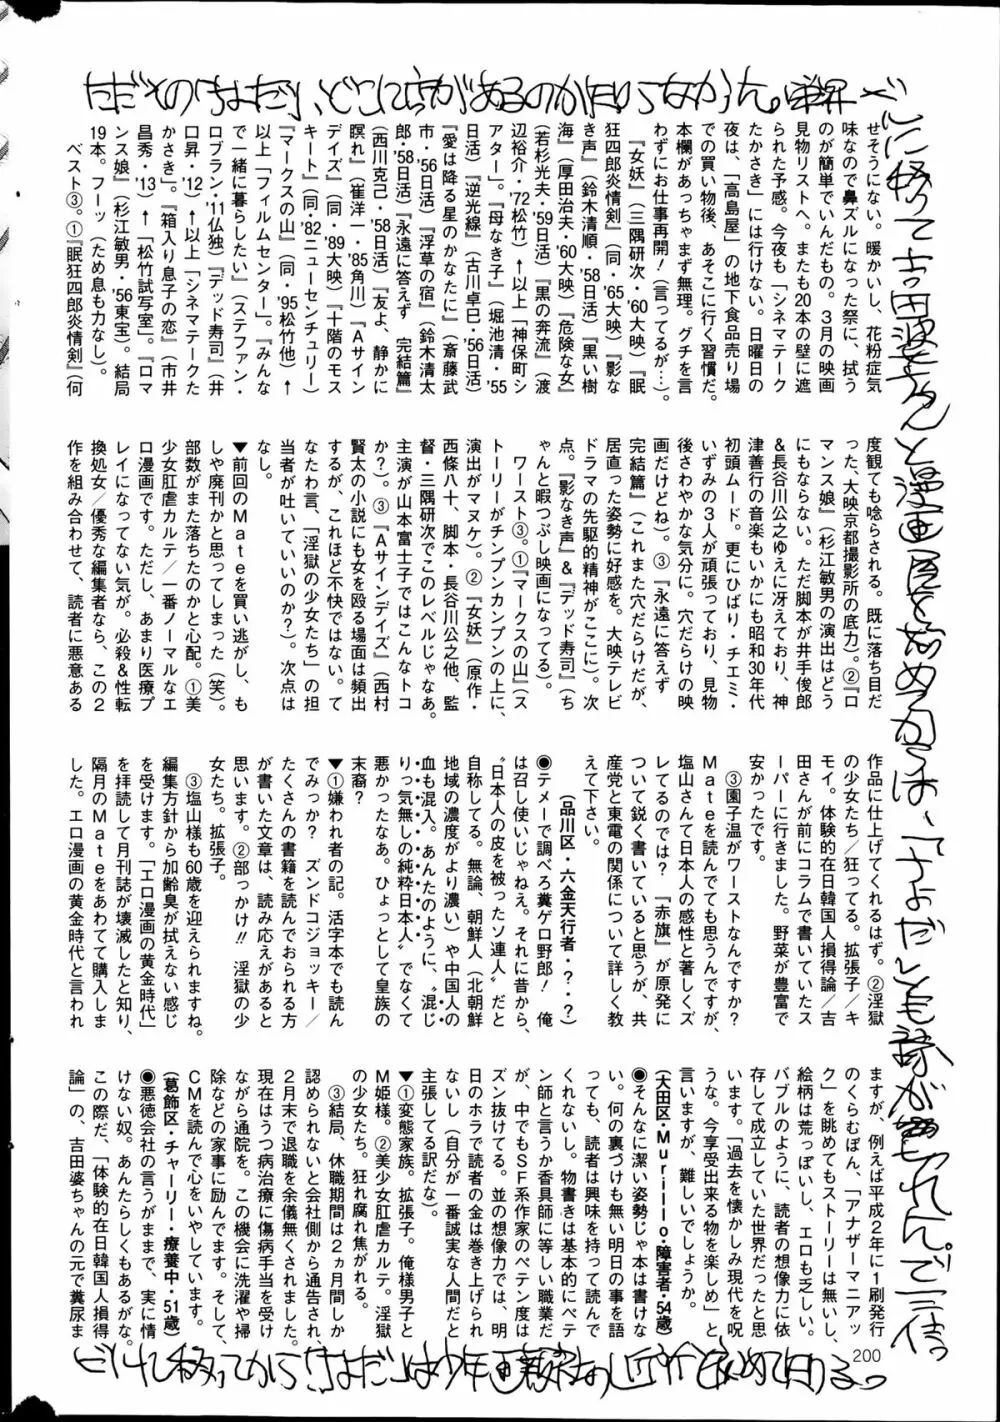 せそうにない。暖かいし、花粉症気
味なので鼻ズルになった祭に、拭う
のが簡単でいんだもの。3月の映画
見物リストへ。またも20本の壁に遮
られた予感。今夜も「シネマテーク
たかさき」には行けない。日曜日の
夜は、「高島屋」の地下食品売り場
での買い物後、あそこに行く習慣だ。
本欄があっちゃまず無理。グチを言
わずにお仕事再開!(言ってるが…。)
『女妖』(三隅研次・'60大映)『眠
狂四郎炎情剣』(同・'65大映)『影な
き声』(鈴木清順・'58日活)『黒い樹
海』(原田治夫・'60大映)『危険な女』
(若杉光夫・'59日活)『黒の奔流』(渡
辺裕介・'72松竹)↑以上「神保町シ
アター」。『母なき子』(堀池清・'55
日活)『逆光線』(古川卓巳・'56日活)
『愛は降る星のかなたに』(斎藤武
市・'56日活)『浮草の宿』(鈴木清太
郎・'58日活)『永遠に答えず 完結篇』
(西川克己・'58日活)『友よ、静かに
瞑れ』(崔洋一・'85角川)『Aサイン
デイズ』(同・'89大映)『十階のモス
キート』(同・'82ニューセンチュリー)
『マークスの山』(同・'95松竹他)↑
以上「フィルムセンター」。『みんな
で一緒に暮らしたい』(ステファン・
ロブラン・'11仏独)『デッド寿司』(井
口昇・'12)↑以上「シネマテークた
かさき」。『箱入り息子の恋』(市井
昌秀・'13)↑「松竹試写室」。『ロマ
ンス娘』(杉江敏男・'56東宝)。結局
19本。フーッ(ため息も力なし)。
ベスト③。①『眠狂四郎炎情剣』(何
度観ても唸らされる。既に落ち目だ
った、大映京都撮影所の底力)。②『ロ
マンス娘』(杉江敏男の演出はどう
にもならない。ただ脚本が井手俊郎
&長谷川公之ゆえに冴えており、神
津善行の音楽もいかにも昭和30年代
初頭ムード。更にひばり・チエミ・
いずみの3人が頑張っており、見物
後さわやかな気分に。穴だらけの映
画だけどね)。③『永遠に答えず
完結篇』(これまた穴だらけだが、
居直った姿勢に好感を。大映テレビ
ドラマの先駆的精神がここに)。次
点。『影なき声』&『デッド寿司』(ち
ゃんと暇つぶし映画になってる)。
ワースト③。①『マークスの山』(ス
トーリーがチンプンカンプンの上に、
演出がマヌケ)。②『女妖』(原作・
西條八十、脚本・長谷川公之他、監
督・三隅研次でこのレベルじゃなあ。
主演が山本富士子ではこんなトコ
か?)。③『Aサインデイズ』(西村
賢太の小説にも女を殴る場面は頻出
するが、これほど不快ではない。て
なたわ言、「淫獄の少女たち」の担
当者が吐いていいのか?)。次点は
なし。
▼前回のMateを買い逃がし、も
しや廃刊かと思ってしまった(笑)。
部数がまた落ちたのかと心配。①美
少女肛虐カルテ/一番ノーマルなエ
ロ漫画です。ただし、あまり医療プ
レイになってない気が。必殺&性転
換処女/優秀な編集者なら、この2
作を組み合わせて、読者に悪意ある
作品に仕上げてくれるはず。②淫獄
の少女たち/狂ってる。拡張子/キ
モイ。体験的在日韓国人損得論/吉
田さんが前にコラムで書いていたス
ーパーに行きました。野菜が豊富で
安かったです。
③園子温がワーストなんですか?
Mateを読んでても思うんですが、
塩山さんて日本人の感性と著しくズ
レてるのでは? 『赤旗』が原発に
ついて鋭く書いていると思うが、共
産党と東電の関係について詳しく教
えて下さい。
(品川区・六金天行者・?・?)
◉テメーで調べろ糞ゲロ野郎! 俺
は召し使いじゃねえ。それに昔から、
〝日本人の皮を被ったソ連人〟だと
自称してる。無論、朝鮮人(北朝鮮
地域の濃度がより濃い)や中国人の
血も混入。あんたのように、〝混じ
りっ気無しの純粋日本人〟でなくて
悪かったなあ。ひょっとして皇族の
末裔?
▼①嫌われ者の記。活字本でも読ん
でみっか? ズンドコジョッキー/
たくさんの書籍を読んでおられる方
が書いた文章は、読み応えがあると
思います。②部っかけ!! 淫獄の少
女たち。拡張子。
③塩山様も60歳を迎えられますね。
編集方針から加齢臭が拭えない感じ
を受けます。「エロ漫画の黄金時代」
を拝読して月刊誌が壊滅したと知り、
隔月のMateをあわてて購入しま
した。エロ漫画の黄金時代と言われ
ますが、例えば平成2年に1刷発行
のくらむぼん、「アナザーマニアッ
ク」を眺めてもストーリーは無いし、
絵柄は荒っぽいし、エロも乏しい。
バブルのように、読者の想像力に依
存して成立していた世界だったと思
います。「過去を懐かしみ現代を呪
うな。今享受出来る物を楽しめ」と
言いますが、難しいでしょうか。
(大田区・Murillo・障害者・54歳)
◉そんなに潔い姿勢じゃ本は書けな
い。何の裏づけも無い明日の事を語
っても、読者は興味を持って読んで
くれないし。物書きは基本的にペテ
ン師と言うか香具師に等しい職業だ
が、中でもSF系作家のペテン度は
ズン抜けてる。並の想像力では、明
日のホラで読者の金は巻き上げられ
ないし(自分が一番誠実な人間だと
主張してる訳だな)。
▼①変態家族。拡張子。俺様男子と
M姫様。②美少女肛虐カルテ。淫獄
の少女たち。狂れ腐れ焦がれる。
③結局、休職期間は2ヵ月間しか
認められないと会社側から通告され、
2月末で退職を余儀無くされました。
現在はうつ病治療に傷病手当を受け
ながら通院を。この機会に洗濯や掃
除などの家事に励んでます。そして、
CMを読んで心をいやしています。
(葛飾区・チャーリー・療養中・51歳)
◉悪徳会社の言うがままで、実に情
けない奴。あんたらしくもあるがな。
この際だ、「体験的在日韓国人損得
論」の、吉田婆ちゃんの元で糞尿ま
200